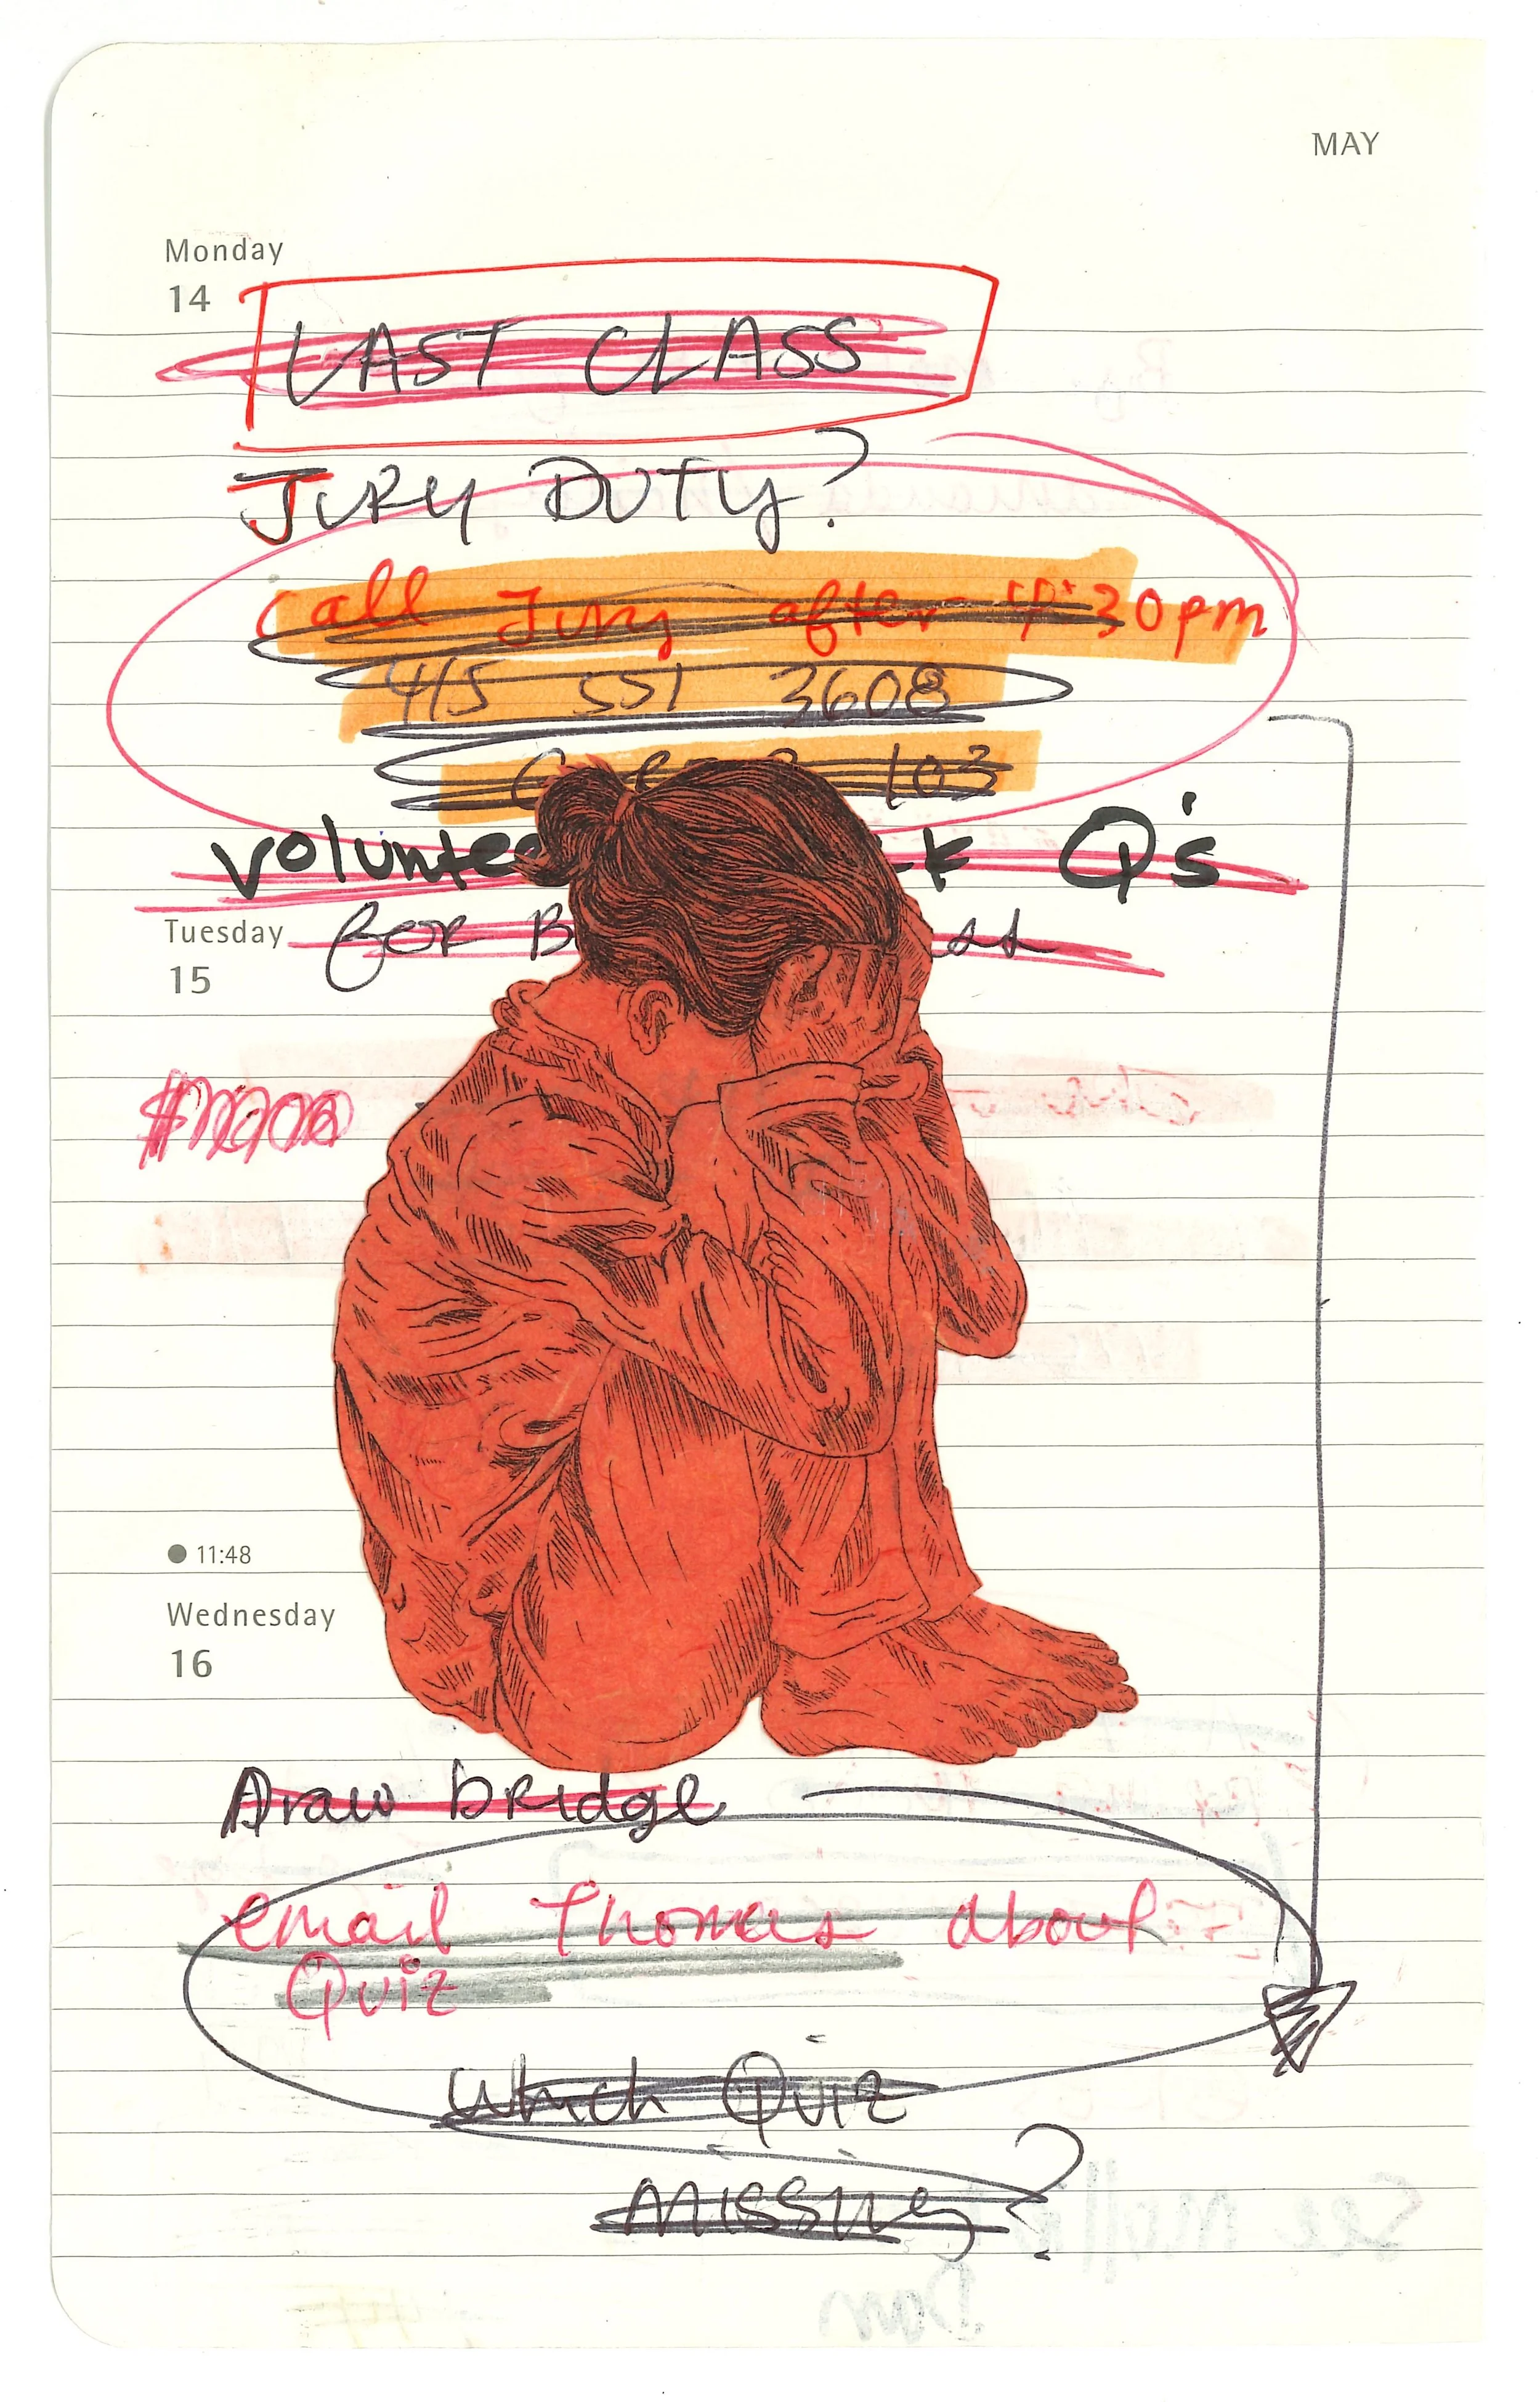 MAY
Monday
14
LAST CLASS
JURY DUTY?
Call Jury after 4:30pm
415 551 3608
103
Q's
Tuesday
for
15
11:48
Wednesday
16
Draw bridge
email Thomas about
Quiz
Which Quiz
missing?